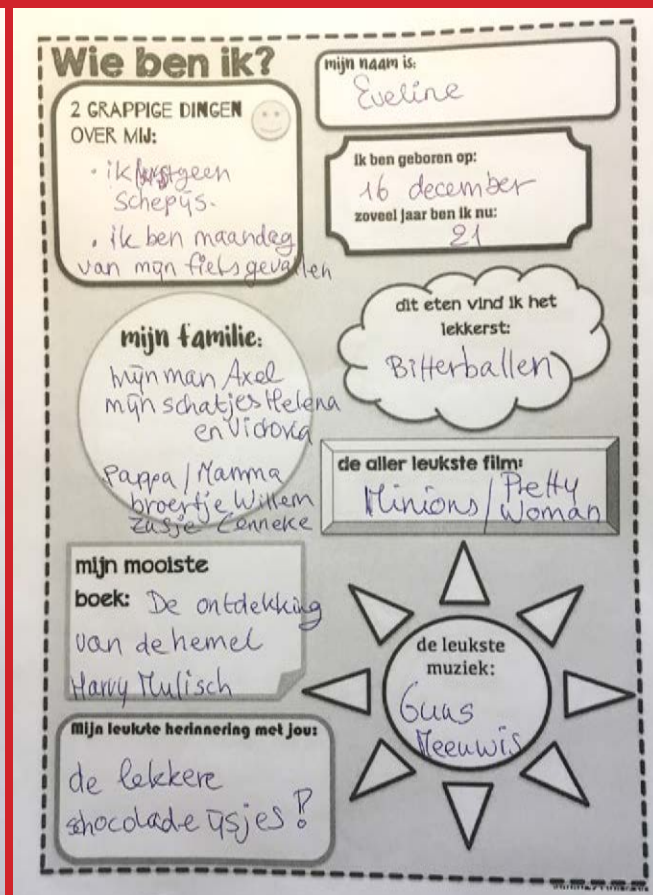 Wie ben ik?
mijn naam is:
Eveline
2 GRAPPIGE DINGEN
OVER MIJ:
• ik geen
schepijs.
• ik ben maandag
van mijn fiets gevallen
Ik ben geboren op:
16 december
zoveel jaar ben ik nu:
21
mijn familie:
mijn man Axel
mijn schatjes Helena
en Victoria
Pappa / Mamma
broertje Willem
zusje Lenneke
dit eten vind ik het
lekkerst:
Bitterballen
de aller leukste film:
Minions / Pretty
Woman
mijn mooiste
boek: De ontdekking
van de hemel
Harry Mulisch
de leukste
muziek:
Guus
Meeuwis
Mijn leukste herinnering met jou:
de lekkere
schocolade ijsjes!